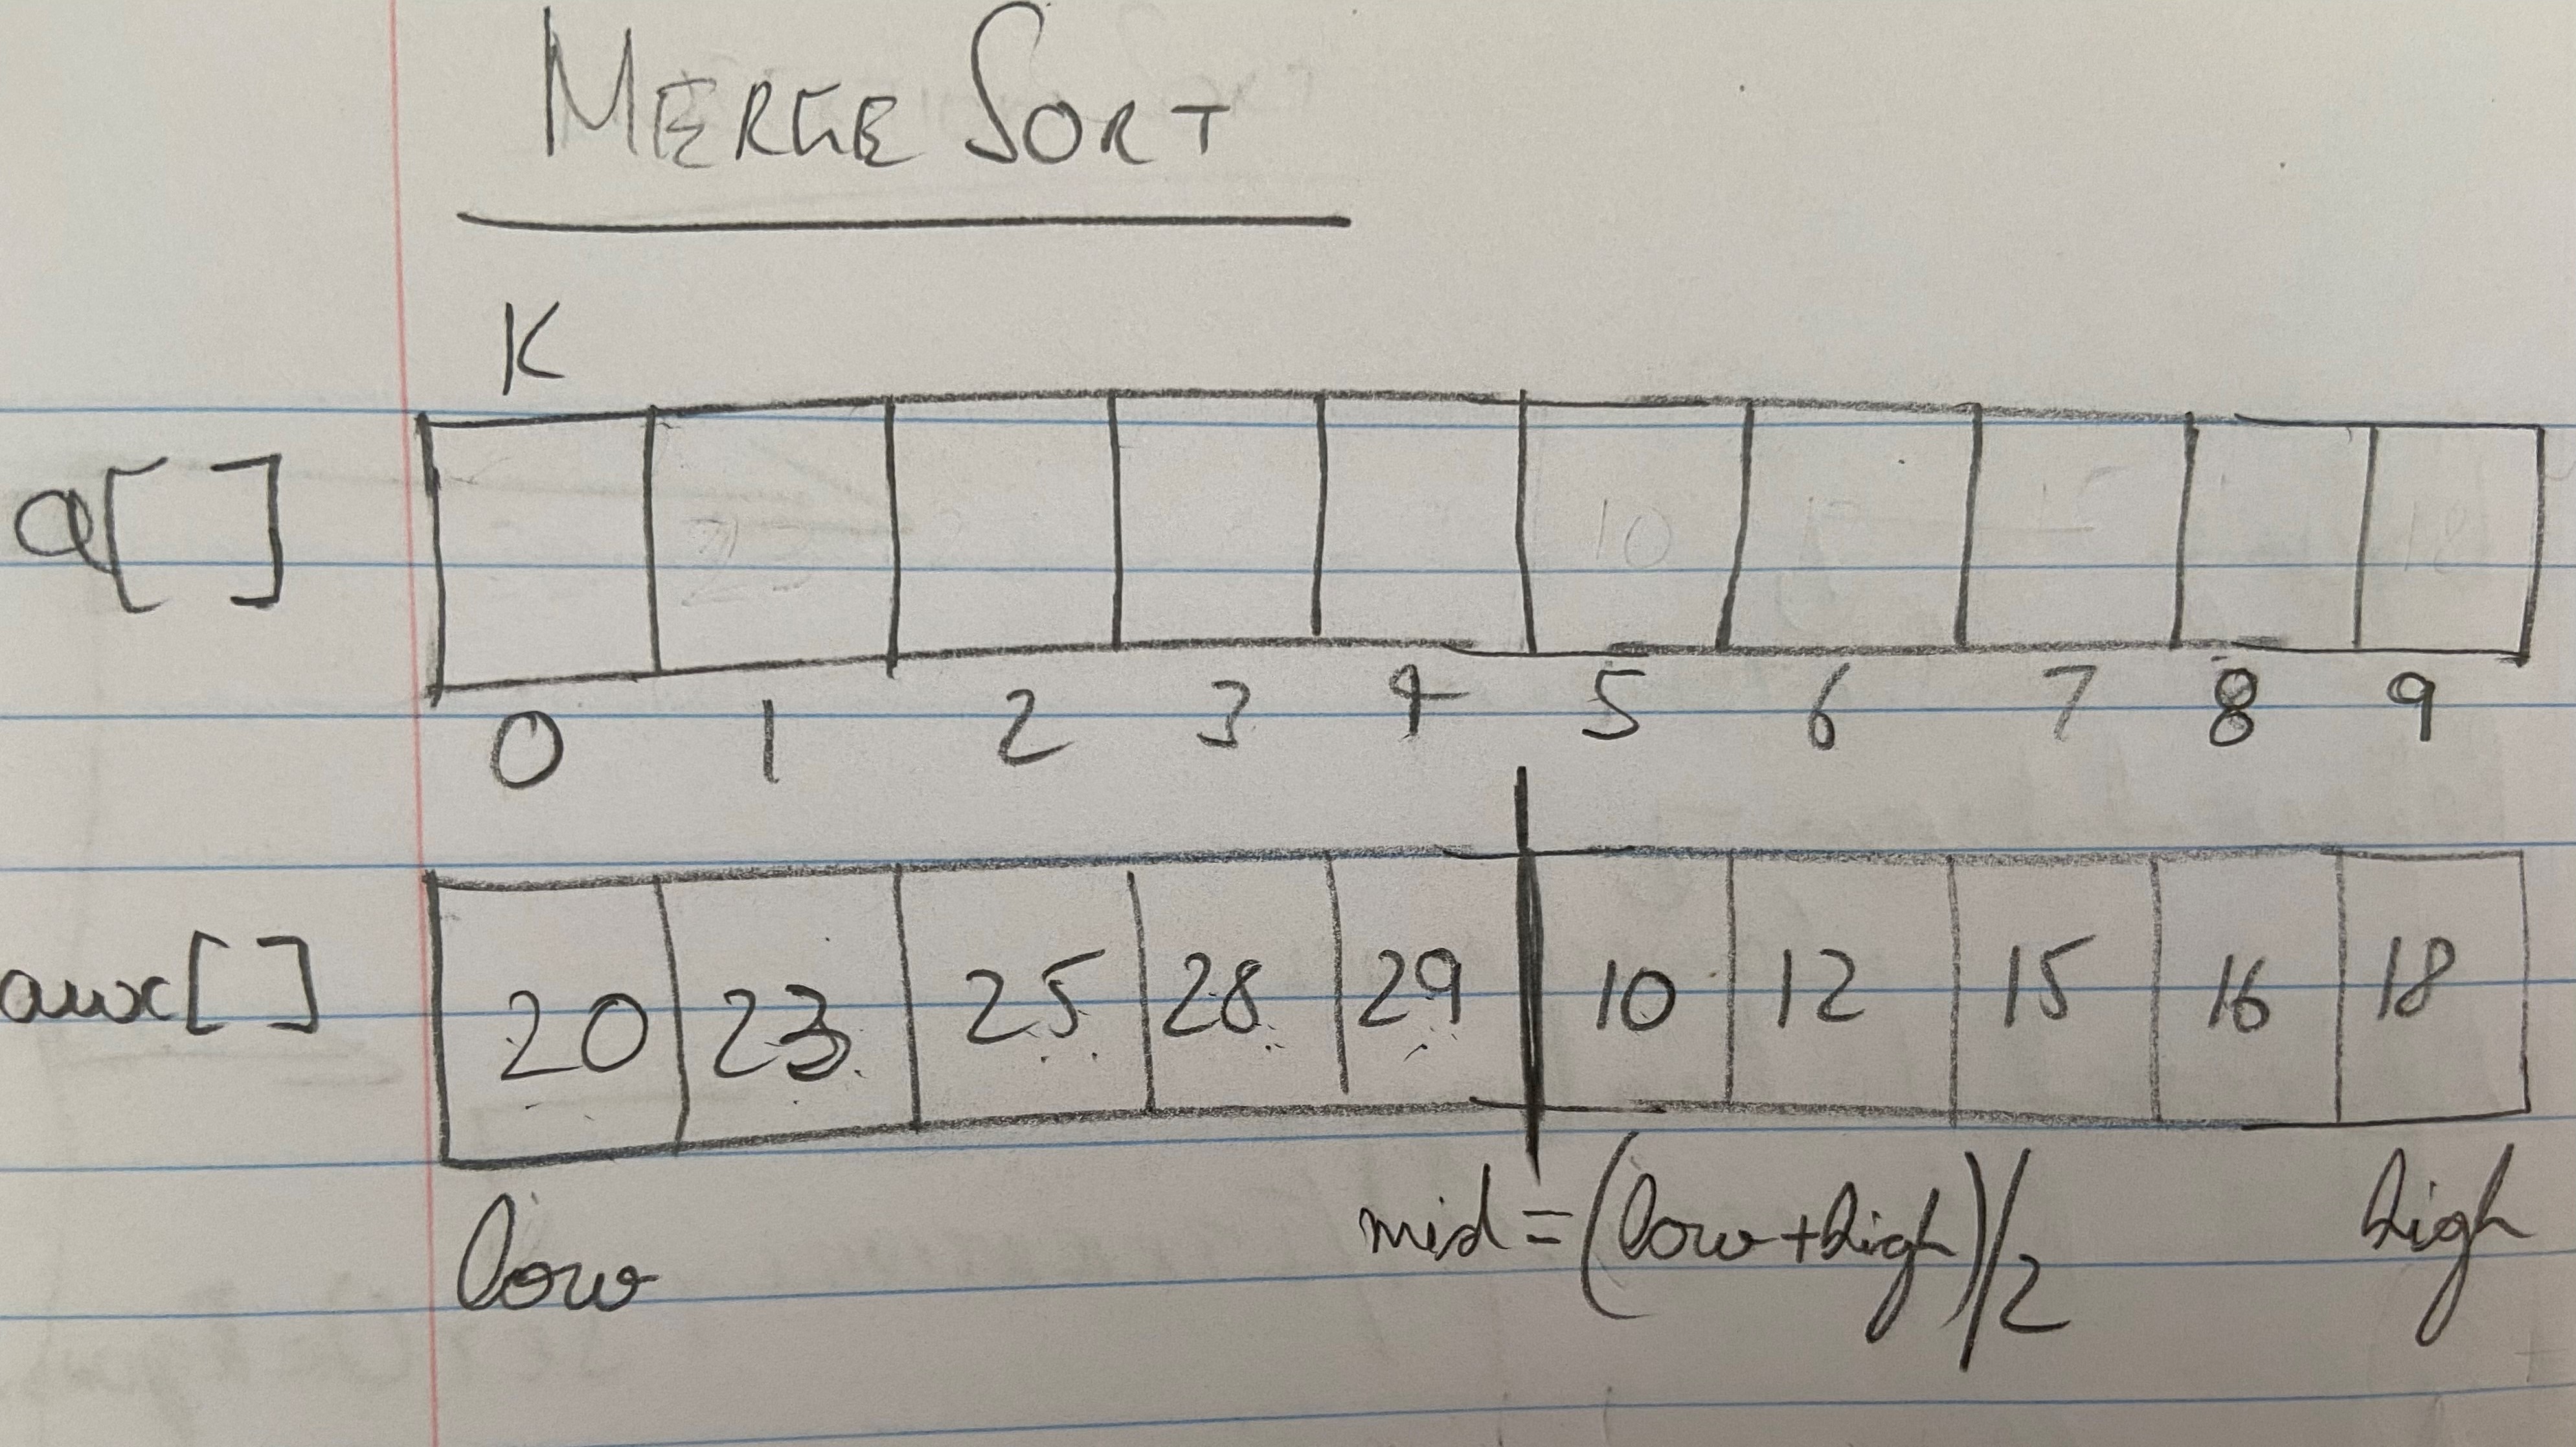 MERGE SORT
K
a[ ]
0 1 2 3 4 5 6 7 8 9
aux[ ] 20 23 25 28 29 10 12 15 16 18
low mid = (low+high)/2 high